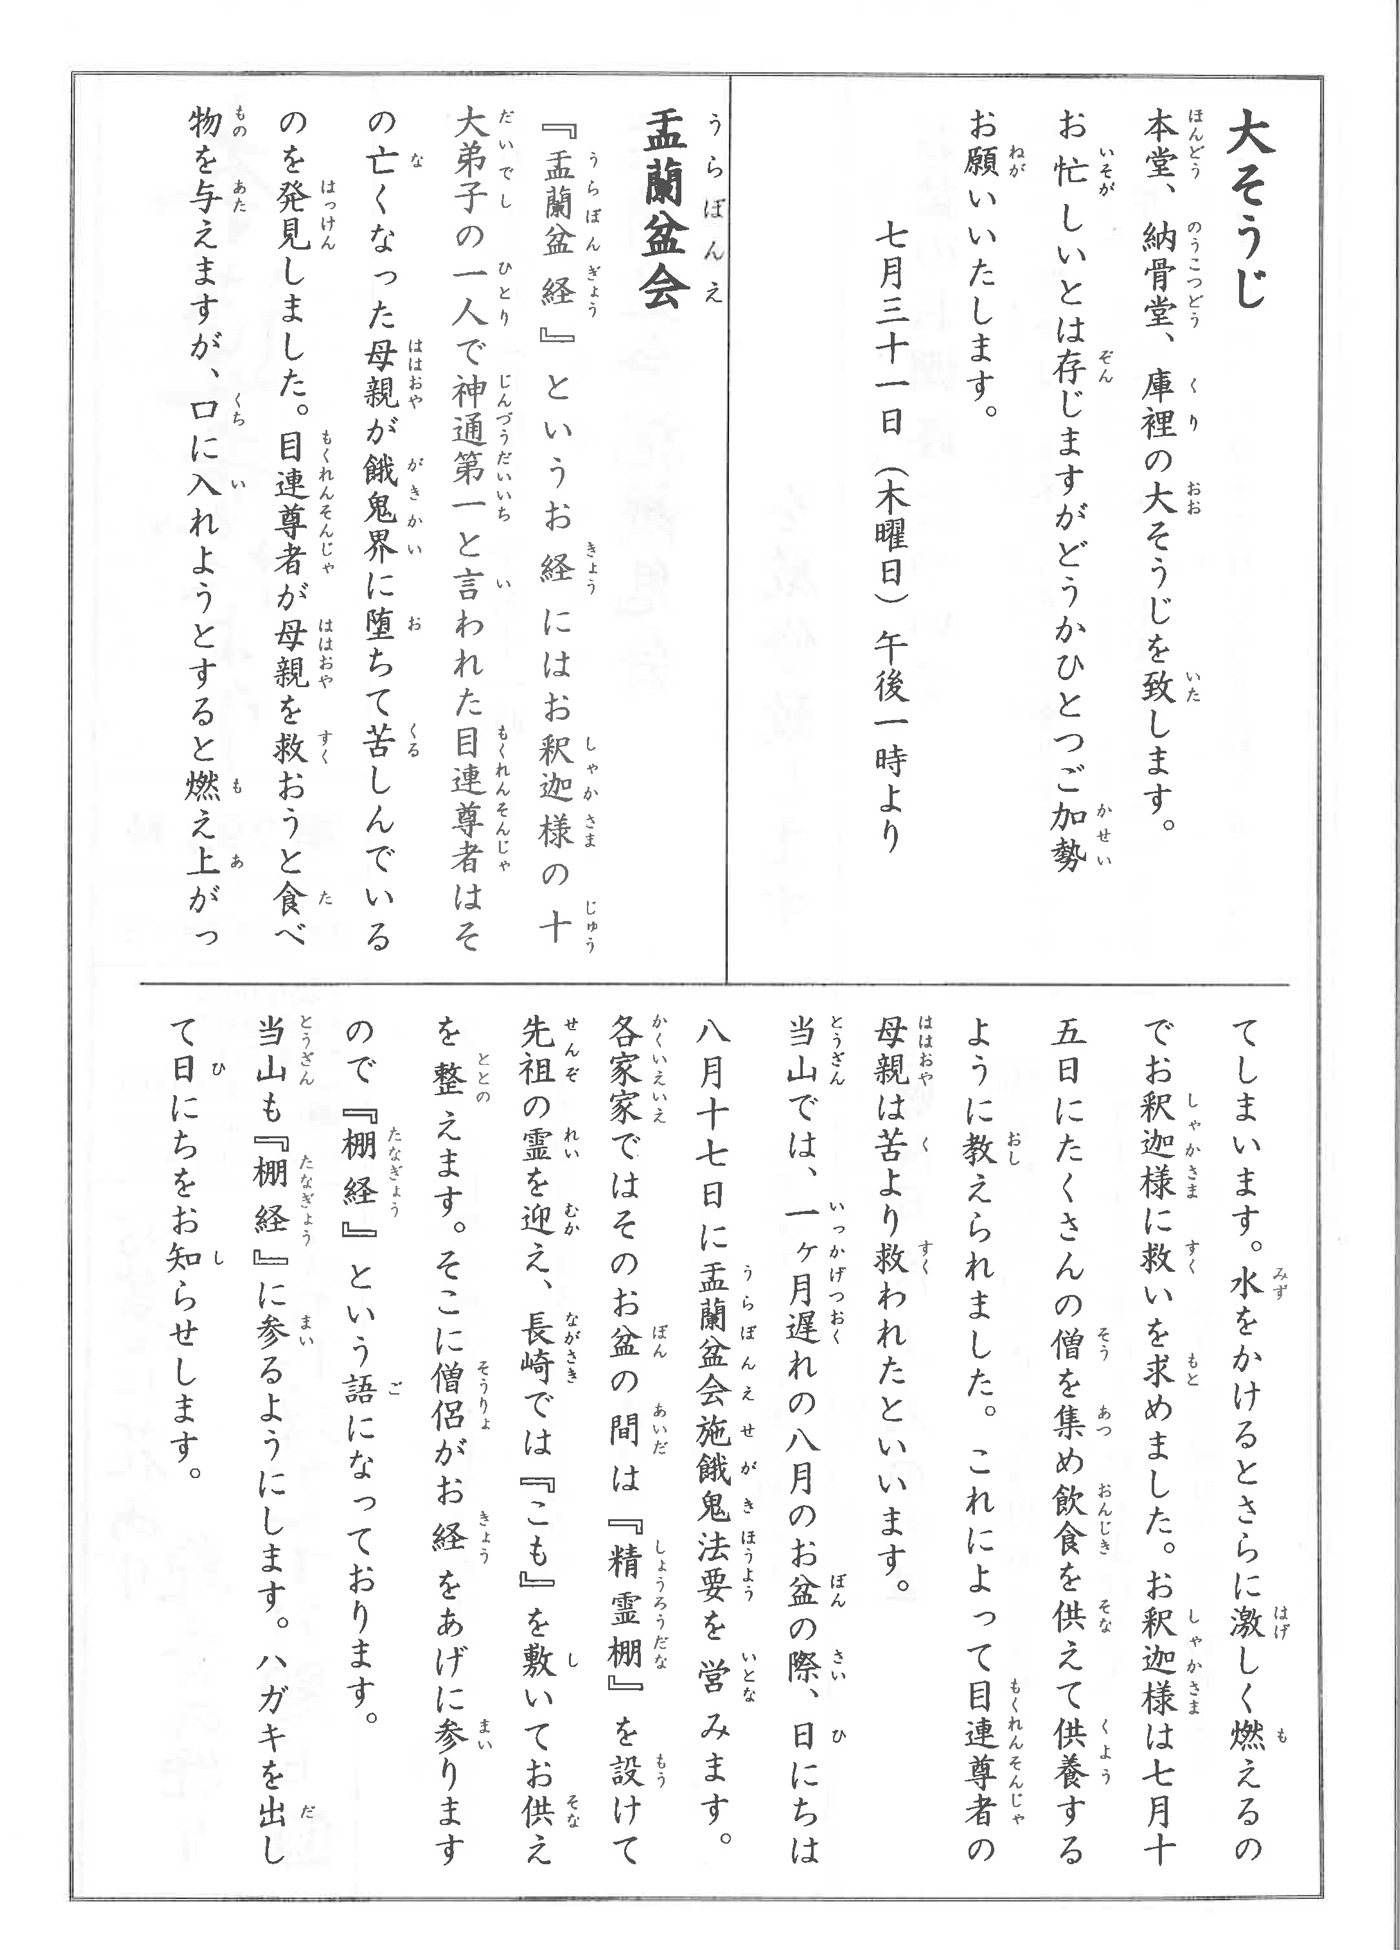 大そうじ
本堂、納骨堂、庫裡の大そうじを致します。
お忙しいとは存じますがどうかひとつご加勢
お願いいたします。
七月三十一日（木曜日）午後一時より
盂蘭盆会
『盂蘭盆経』というお経にはお釈迦様の十
大弟子の一人で神通第一と言われた目連尊者はそ
の亡くなった母親が餓鬼界に堕ちて苦しんでいる
のを発見しました。目連尊者が母親を救おうと食べ
物を与えますが、口に入れようとすると燃え上がっ
てしまいます。水をかけるとさらに激しく燃えるの
でお釈迦様に救いを求めました。お釈迦様は七月十
五日にたくさんの僧を集め飲食を供えて供養する
ように教えられました。これによって目連尊者の
母親は苦より救われたといいます。
当山では、一ヶ月遅れの八月のお盆の際、日にちは
八月十七日に盂蘭盆会施餓鬼法要を営みます。
各家家ではそのお盆の間は『精霊棚』を設けて
先祖の霊を迎え、長崎では『こも』を敷いてお供え
を整えます。そこに僧侶がお経をあげに参ります
ので『棚経』という語になっております。
当山も『棚経』に参るようにします。ハガキを出し
て日にちをお知らせします。